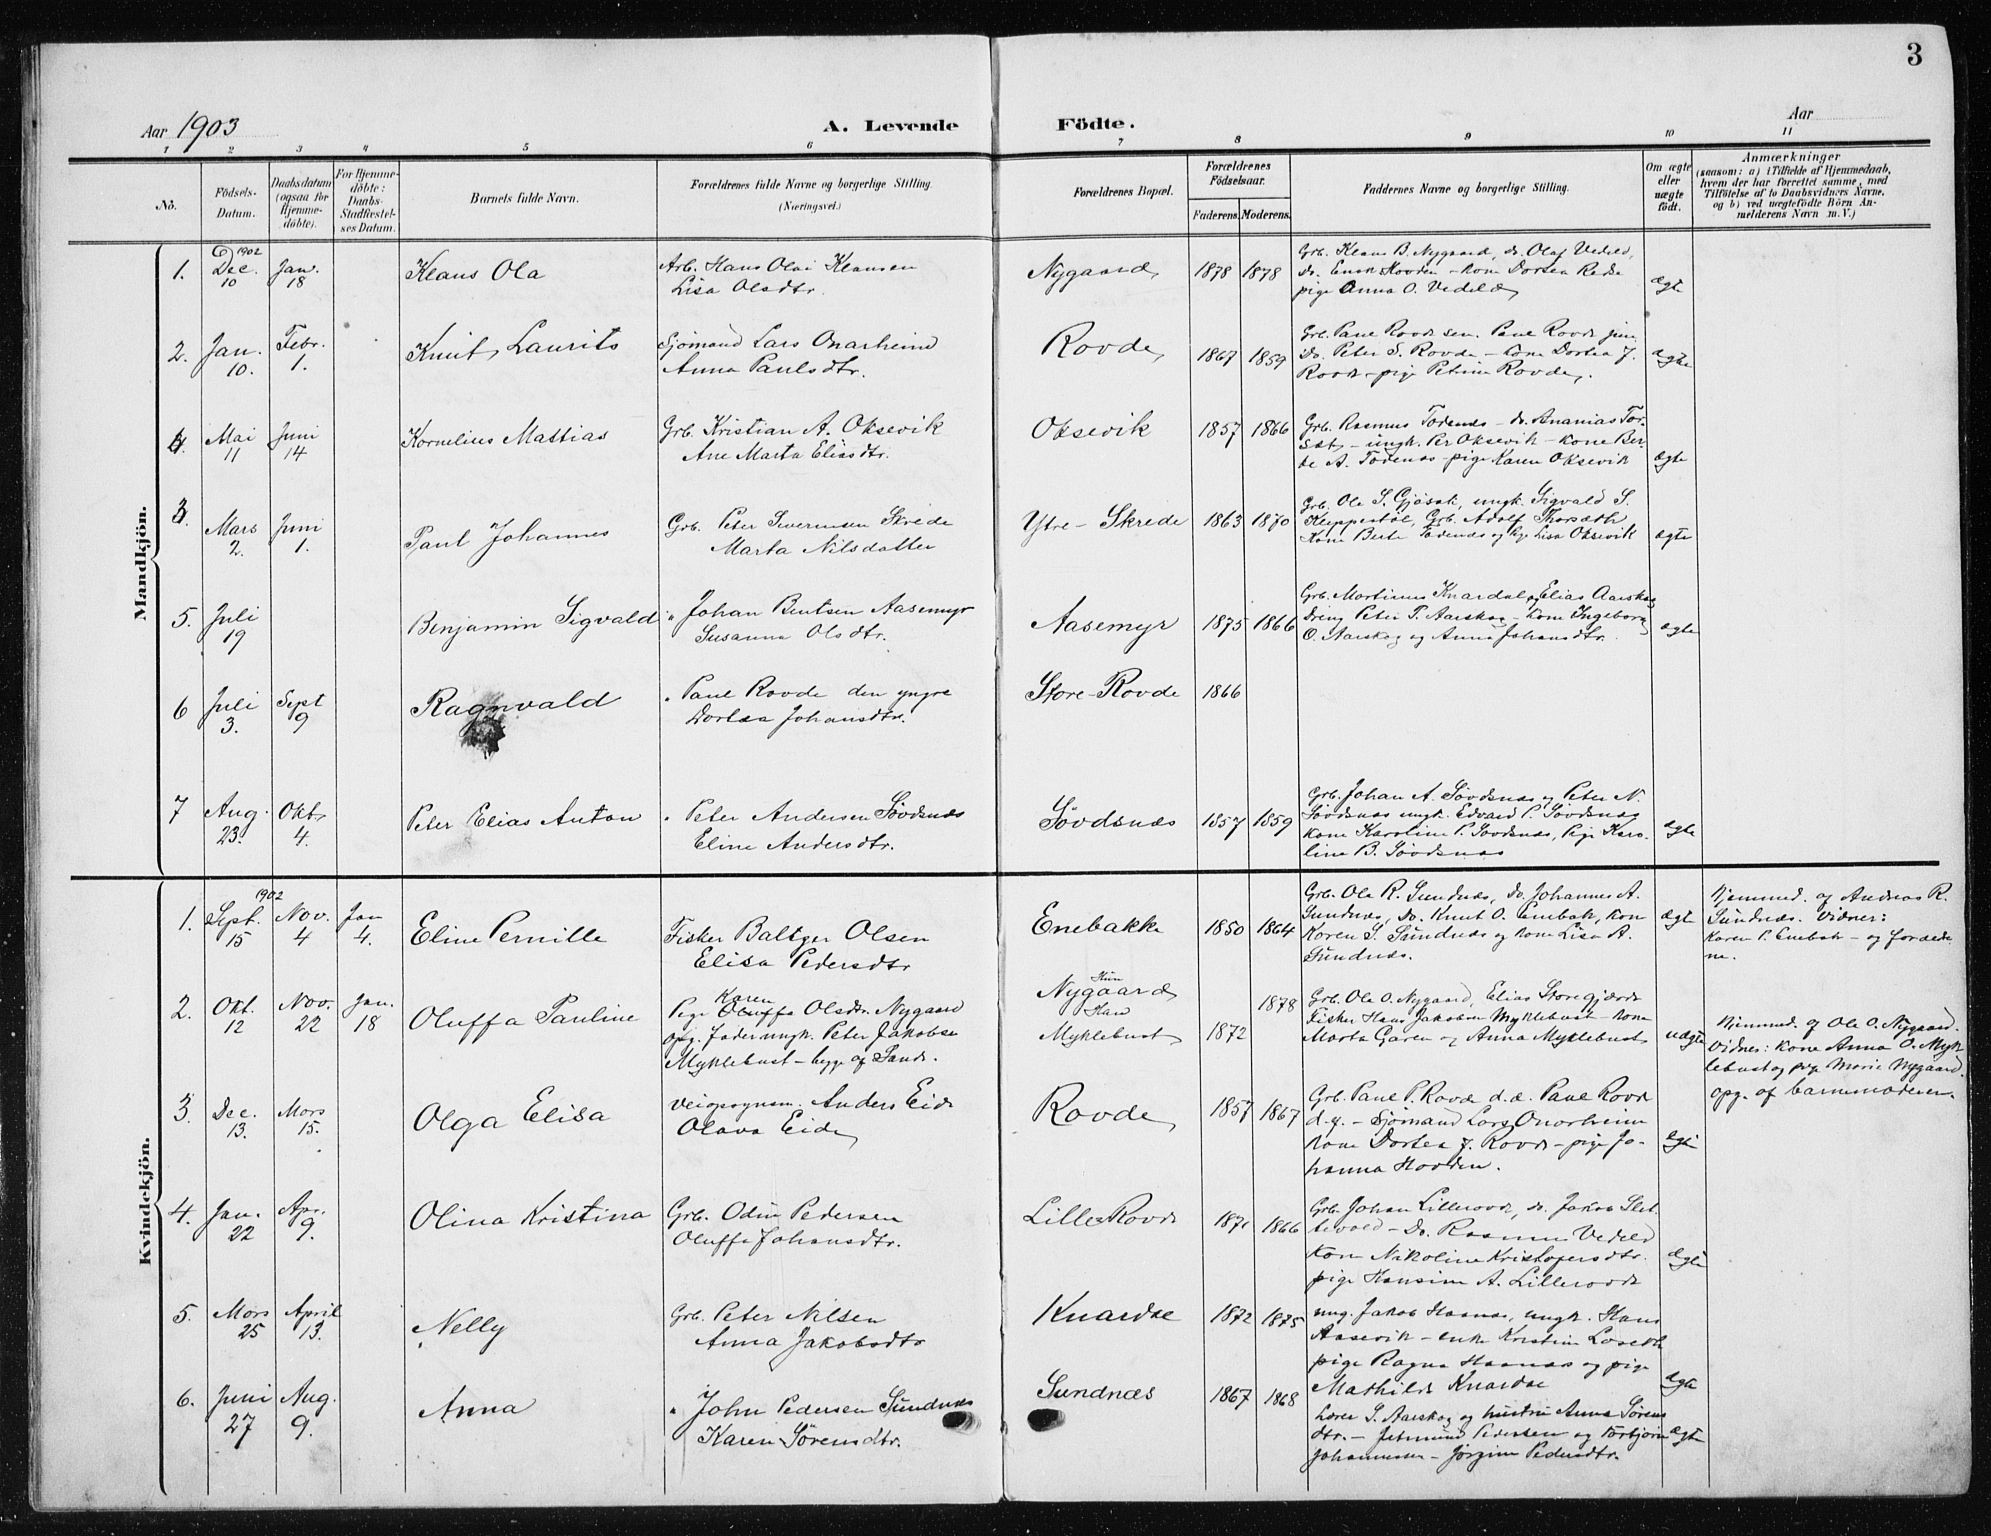 3
Aar 1903
A. Levende Födte.
Aar
1 2 3 4 5 6 7 8 9 10 11
No.
Födsels-
Datum.
Daabsdatum
(ogsaa for
Hjemme-
döbte).
For Hjemme-
döbte:
Daabs-
Stadfæstel-
ses Datum.
Barnets fulde Navn.
Forældrenes fulde Navne og borgerlige Stilling.
(Næringsvei.)
Forældrenes Bopæl.
Forældrenes
Födselsaar.
Faderens. Moderens.
Faddernes Navne og borgerlige Stilling.
Om ægte
eller
uægte
födt.
Anmærkninger
(saasom: a) i Tilfælde af Hjemmedaab,
hvem der har forrettet samme, med
Tilföielse af to Daabsvidners Navne,
og b) ved uægtefödte Börn An-
melderens Navn m. V.)
Mandkjön.
1. 1902 Dec. 10 Jan. 18
Klaus Ola
Arb. Hans Olai Klausen
Lisa Olsdtr.
Nygaard 1878 1878
Grb. Klaus B. Nygaard, do. Olaf Vedeld,
do. Hovden - kone Dortea
pige Anna O. Vedeld
ægte
2. Jan. 10. Febr. 1.
Knut Laurits
Sjömand Lars Onarheim
Anna Paulsdtr.
Rovde 1867 1859
Grb. Paul Rovde sen. Paul Rovde jun.
Do. Peter S. Rovde - kone Dortea J.
Rovde - pige Petrine Rovde.
ægte
4. Mai 11 Juni 14
Kornelius Mattias
Grb. Kristian A. Oksevik
Ane Marta Eliasdtr.
Oksevik 1857 1866
Grb. Rasmus Todenæs - do. Ananias Tor-
sæt - ungk. Per Oksevik - kone Ber-
te A. Todenæs - pige Karen Oksevik
ægte
3. Mars 2. Juni 1.
Paul Johannes
Grb. Peter Severinsen Skrede
Marta Nilsdatter
Ytre-Skrede 1863 1870
Grb. Ole S. Gjösæt, ungk. Sigvald S.
Kleppestöl, Grb. Adolf Thorsæth,
Kone Berte Todenæs og Pige Lisa Oksevik
ægte
5. Juli 19
Benjamin Sigvald
" Johan Bentsen Aasemyr
Susanna Olsdtr.
Aasemyr 1875 1866
Grb. Martinus Knardal, Elias Aarskog
Dreng Peter P. Aarskog - kone Ingeborg
O. Aarskog og Anna Johansdtr.
ægte
6 Juli 3. Sept 9
Ragnvald
" Paul Rovde den yngre
Dortea Johansdtr.
Store-Rovde 1866
7 Aug. 23. Okt. 4.
Peter Elias Anton
" Peter Andersen Sövdsnæs
Eline Andersdtr.
Sövdsnæs 1857 1859
Grb. Johan A. Sövdsnæs og Peter N.
Sövdsnæs ungk. Edvard P. Sövdsnæs
kone Karoline P. Sövdsnæs, Pige Karo-
line B. Sövdsnæs
ægte
Kvindekjön.
1. 1902 Sept. 15 Nov. 4 Jan 4.
Eline Pernille
Fisker Baltzer Olsen
Elisa Pedersdtr
Enebakke 1850 1864
Grb. Ole R. Sundnæs, do. Johannes A.
Sundnæs, do. Knut O. Enebak, kone
Karen S. Sundnæs og kone Lisa A.
Sundnæs.
ægte
Hjemmed. af Andreas R.
Sundnæs. Vidner:
Karen P. Enebak - og foræld-
ne.
2. Okt. 12 Nov. 22 Jan. 18
Oluffa Pauline
Karen
Pige Oluffa Olsdtr. Nygaard
opg. Fader ungk. Peter Jakobse
Myklebust - begge af Sande.
Hun
Nygaard 1878
Han
Myklebust 1872
Grb. Ole O. Nygaard, Elias Storegjærde
Fisker Hans Jakobsen Myklebust - kone
Marta Garen og Anna Myklebust
uægte
Hjemmed. af Ole O. Nygaard.
Vidner: kone Anna O. Myk-
lebust og pige Marie Nygaard.
opg. af barnemoderen.
3. Dec. 13. Mars 15.
Olga Elisa
Veiopsynsm. Anders Eide
Olava Eide
Rovde 1857 1867
Grb. Paul P. Rovde d. æ. Paul Rovde
d. y. - Sjömand Lars Onarheim
kone Dortea J. Rovde - pige Jo-
hanna Hovden.
ægte
4. Jan. 22 Apr. 9.
Olina Kristina
Grb. Odin Pedersen
Oluffa Johansdtr.
Lille Rovde 1871 1866
Grb. Johan Lillerovde, do. Jakob Slet-
tevold - Do. Rasmus Vedeld
kone Nikoline Kristofersdtr.
pige Hansine A. Lillerovde
ægte
5. Mars 25 April 13.
Nelly
Grb. Peter Nilsen
Anna Jakobsdtr
Knardal 1872 1875
ung. Jakob Haanæs, ungk. Hans
Aasevik - enke Kristine Loseth
pige Ragna Haanæs og pige
Mathilde Knardal
ægte
6. Juni 27 Aug. 9.
Anna
" John Pedersen Sundnæs
Karen Sörensdtr.
Sundnæs 1867 1868
Lærer S. Aarskog og hustru Anna Sörens
dtr. - Jetmund Pedersen og Torbjörn
Johannessen - Jörgine Pedersdtr.
ægte